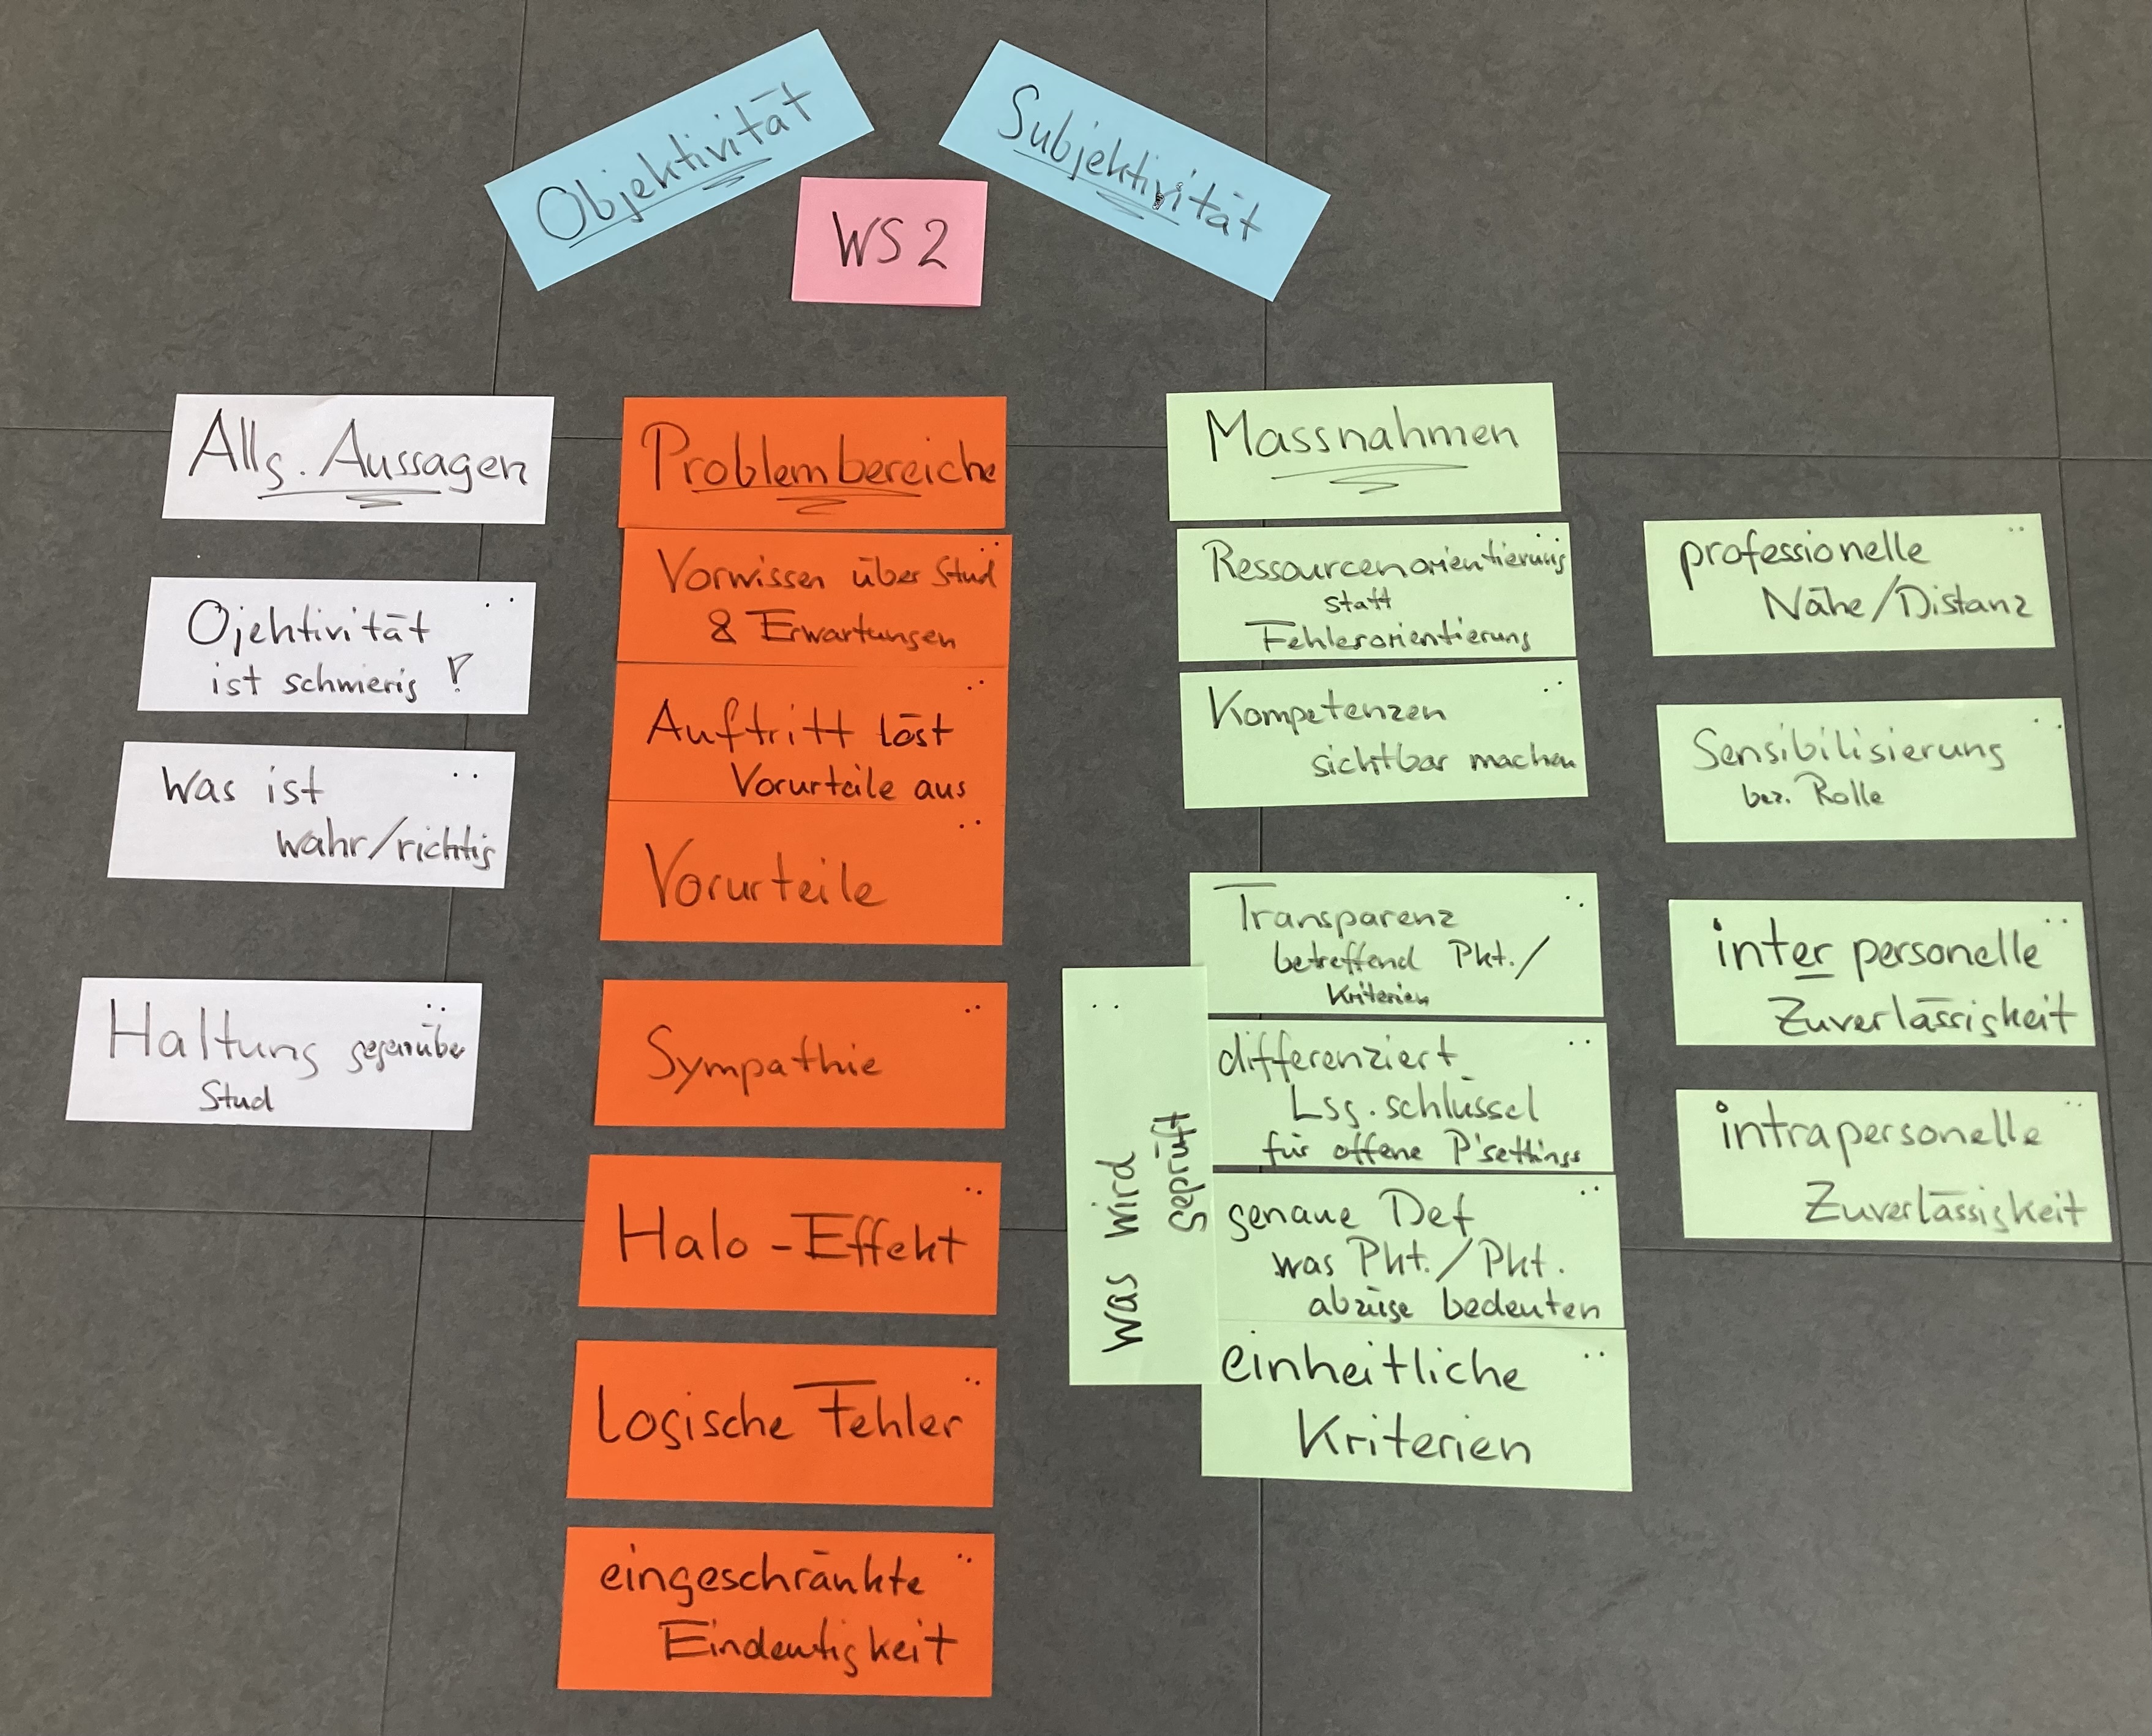 Objektivität
Subjektivität
WS 2
Allg. Aussagen
Ojektivität
ist schwierig !
Was ist
wahr/richtig
Haltung gegenüber
Stud
Problembereiche
Vorwissen über Stud
& Erwartungen
Auftritt löst
Vorurteile aus
Vorurteile
Sympathie
Halo-Effekt
Logische Fehler
eingeschränkte
Eindeutigkeit
Massnahmen
Ressourcenorientierung
statt
Fehlerorientierung
Kompetenzen
sichtbar machen
Was wird
geprüft
Transparenz
betreffend Pkt./
Kriterien
differenziert
Lsg.schlüssel
für offene P'settings
genaue Def
was Pkt./Pkt.
abzüge bedeuten
einheitliche
Kriterien
professionelle
Nähe/Distanz
Sensibilisierung
bez. Rolle
inter personelle
Zuverlässigkeit
intrapersonelle
Zuverlässigkeit